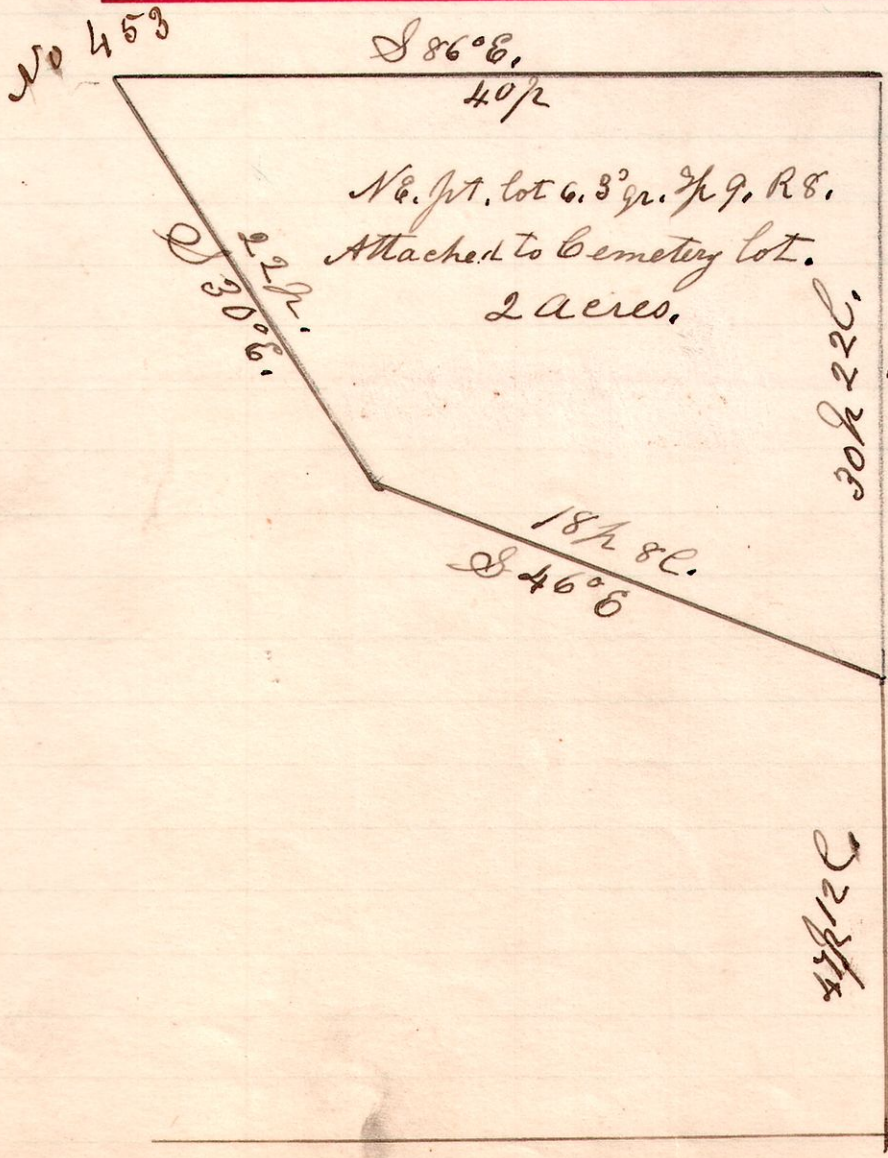 No 453
S 86° E.
40p
NE. pt. lot 6. 3° qr. Tp 9. R 8.
Attached to Cemetery lot.
2 acres.
22p.
S 30° E.
30p 22l.
18p 8l.
S 46° E
47p 12l